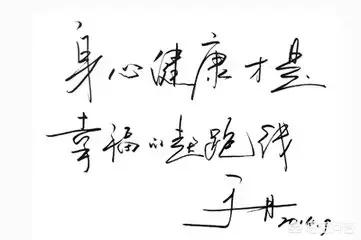 身心健康才是
幸福的起跑线
于丹